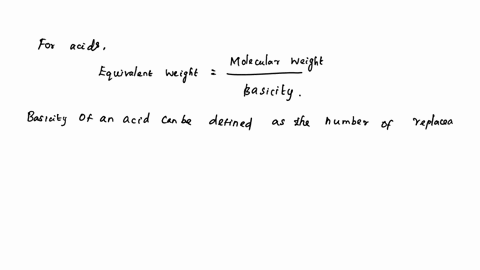 For acids,
Equivalent weight = Molecular weight / Basicity.
Basicity of an acid can be defined as the number of replacea